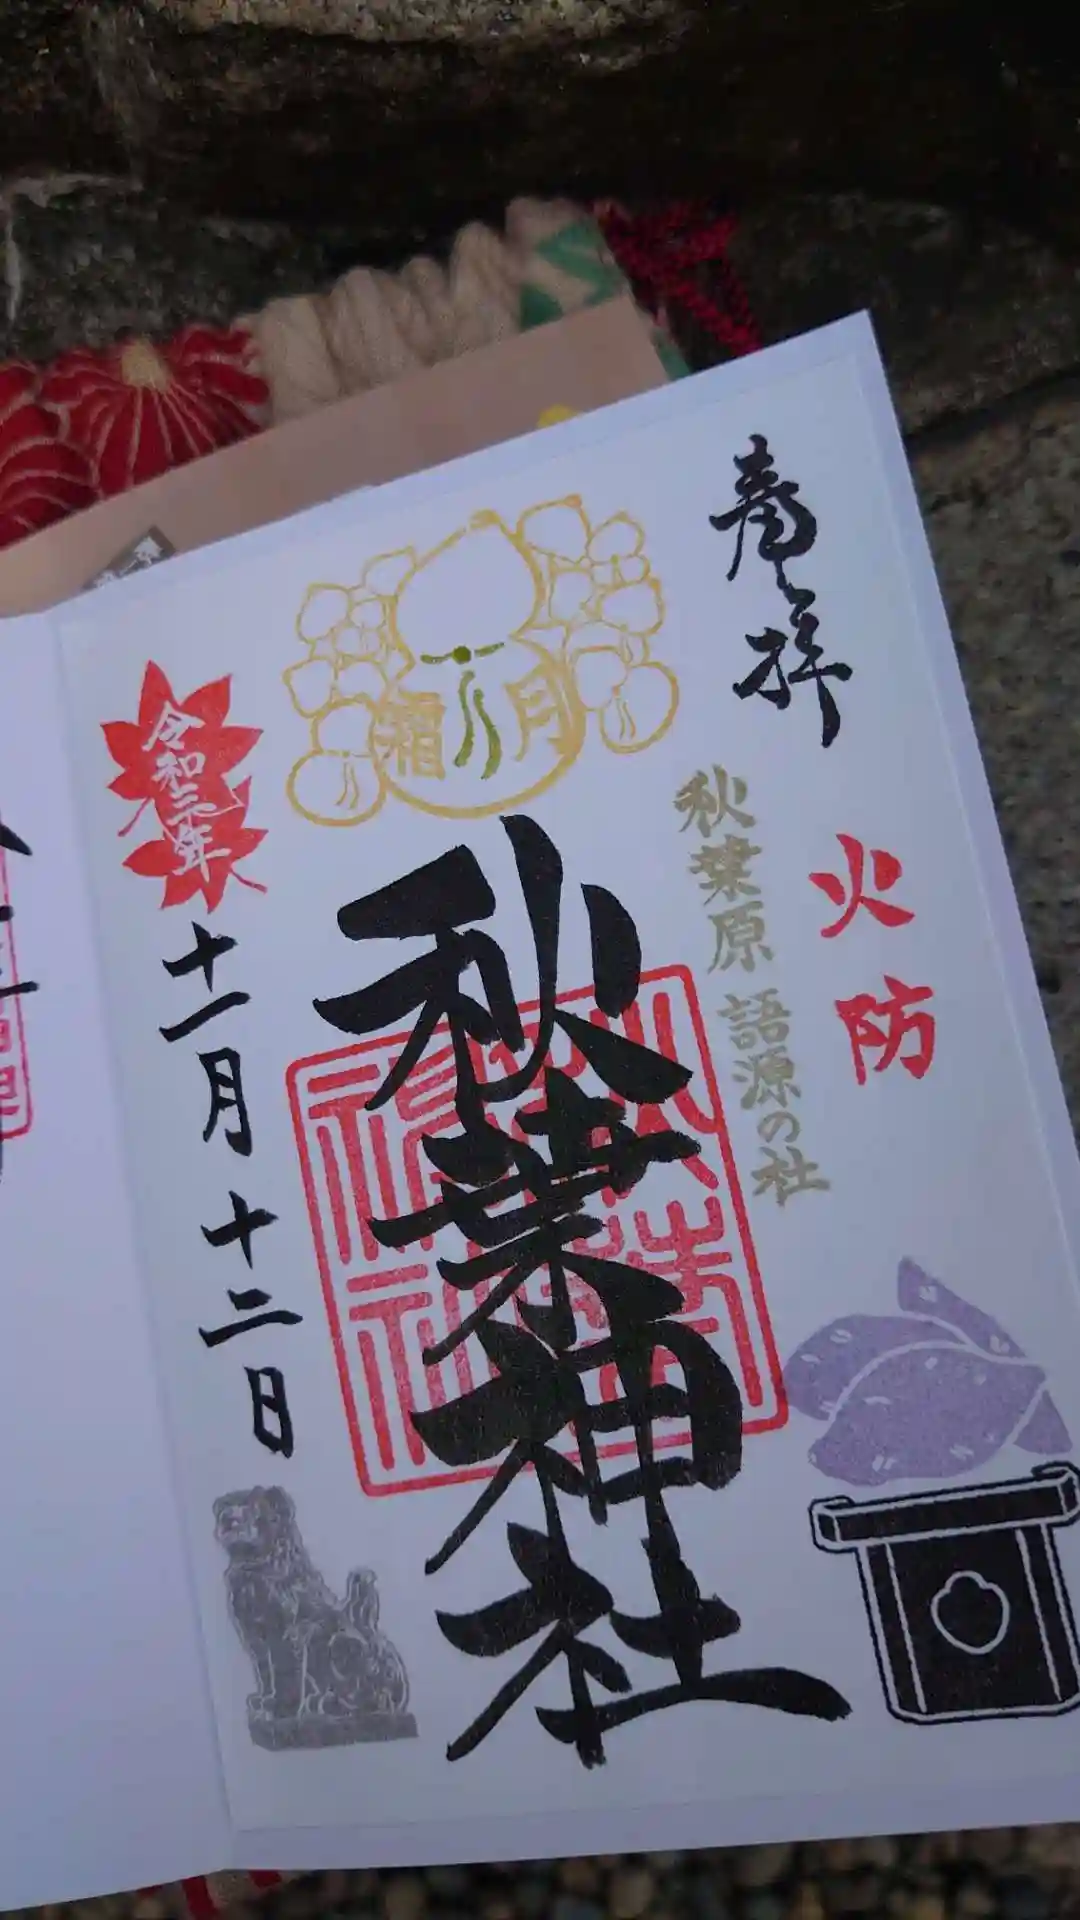 奉拝
火防
秋葉原 語源の社
霜月
秋葉神社
令和三年
十一月十二日